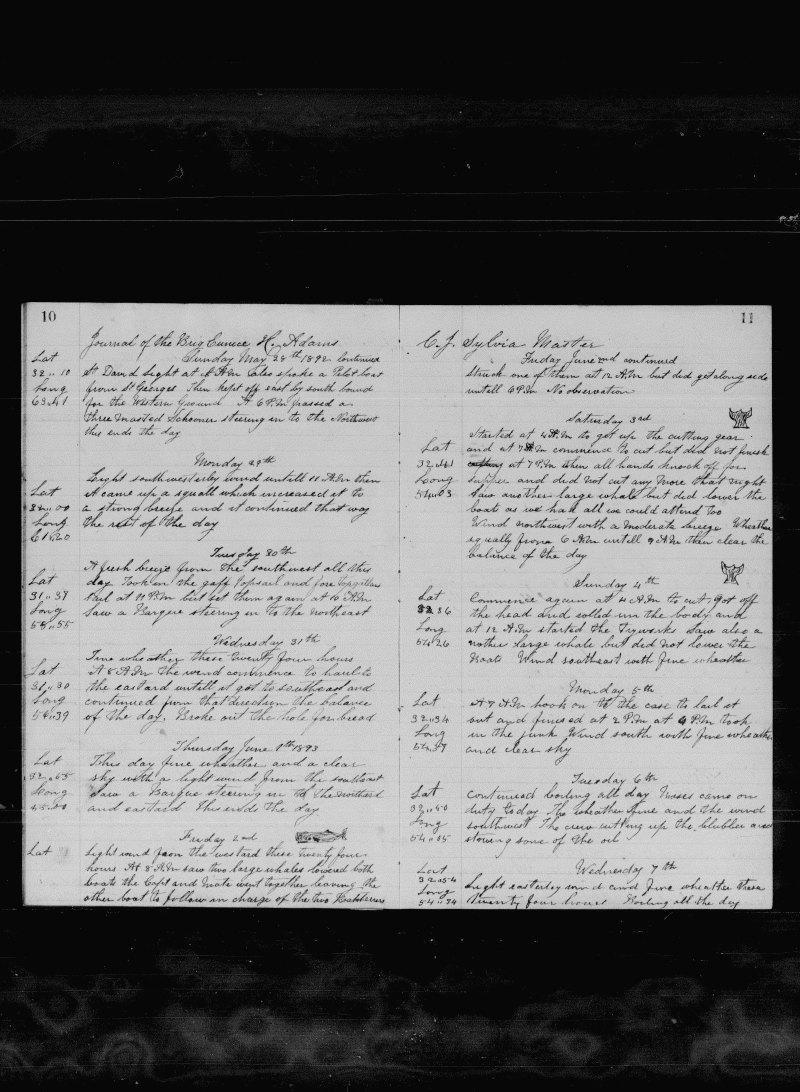 10
Journal of the Brig Eunice H. Adams
Sunday May 28th 1892 continued
Lat
32 " 10
Long
63 " 41
St David Light at A.M. Also spoke a Pilot boat
from St Georges. Then kept off east by south bound
for the Western Ground. At 6 P.M passed a
three masted Schooner steering in to the Northwest
this ends the day
Monday 29th
Lat
32 " 00
Long
61 " 20
Light southwesterly wind untill 11 A.M then
it came up a squall which increased it to
a strong breeze and it continued that way
the rest of the day
Tuesday 30th
Lat
31 " 37
Long
55 " 55
A fresh breeze from the southwest all this
day. Took in the gaff topsail and fore topgallant
sail at 11 P.M but set them again at 10 A.M.
Saw a Barque steering in to the northeast
Wednesday 31th
Lat
31 " 30
Long
54 " 39
Fine wheather these twenty four hours
At 8 A.M the wend commence to haul to
the eastard untill it got to southeast and
continued from that direction the balance
of the day. Broke out the hole for bread
Thursday June 1th 1893
Lat
32 " 55
Long
This day fine wheather and a clear
sky with a light wind from the southeast
Saw a Barque steering in to the northerd
and eastard this ends the day
Friday 2nd
Lat
Light wind from the westard these twenty four
hours At 8 A.M saw two large whales lowered both
boats the Capt and Mate went together leaving the
other boat to follow in charge of the two Boatsteerers
11
C. J. Sylvia Master
Friday June 2nd continued
Struck one of them at 12 A.M but did get along side
untill 6 P.M No observation
Saturday 3rd
Lat
32 " 41
Long
54 " 03
Started at 4 A.M to get up the cutting gear
and at 7 A.M commence to cut but did not finish
cutting at 7 P.M when all hands knock off for
supper and did not cut any more that night
Saw another large whale but did lower the
boats as we had all we could attend to
Wind northwest with a moderate breeze Wheather
squally from 6 A.M untill 9 A.M then clear the
balance of the day
Sunday 4th
Lat
32 " 36
Long
54 " 26
Commence again at 4 A.M to cut, Got off
the head and rolled in the body and
at 12 A.M started the Tryworks Saw also a
nother large whale but did not lower the
Boats Wind southeast with fine wheather
Monday 5th
Lat
32 " 34
Long
54 " 37
At 7 A.M hook on to the case to bail it
out and finised at 2 P.M at 4 P.M took
in the junk Wind south with fine wheather
and clear sky
Tuesday 6th
Lat
32 " 50
Long
54 " 05
Continued boiling all day Moses came on
duty today The wheather fine and the wind
southwest The crew cutting up the blubber and
stowing some of the oil
Wednesday 7th
Lat
32 " 54
Long
54 " 34
Light easterly wind and fine wheather these
twenty four hours Boiling all the day